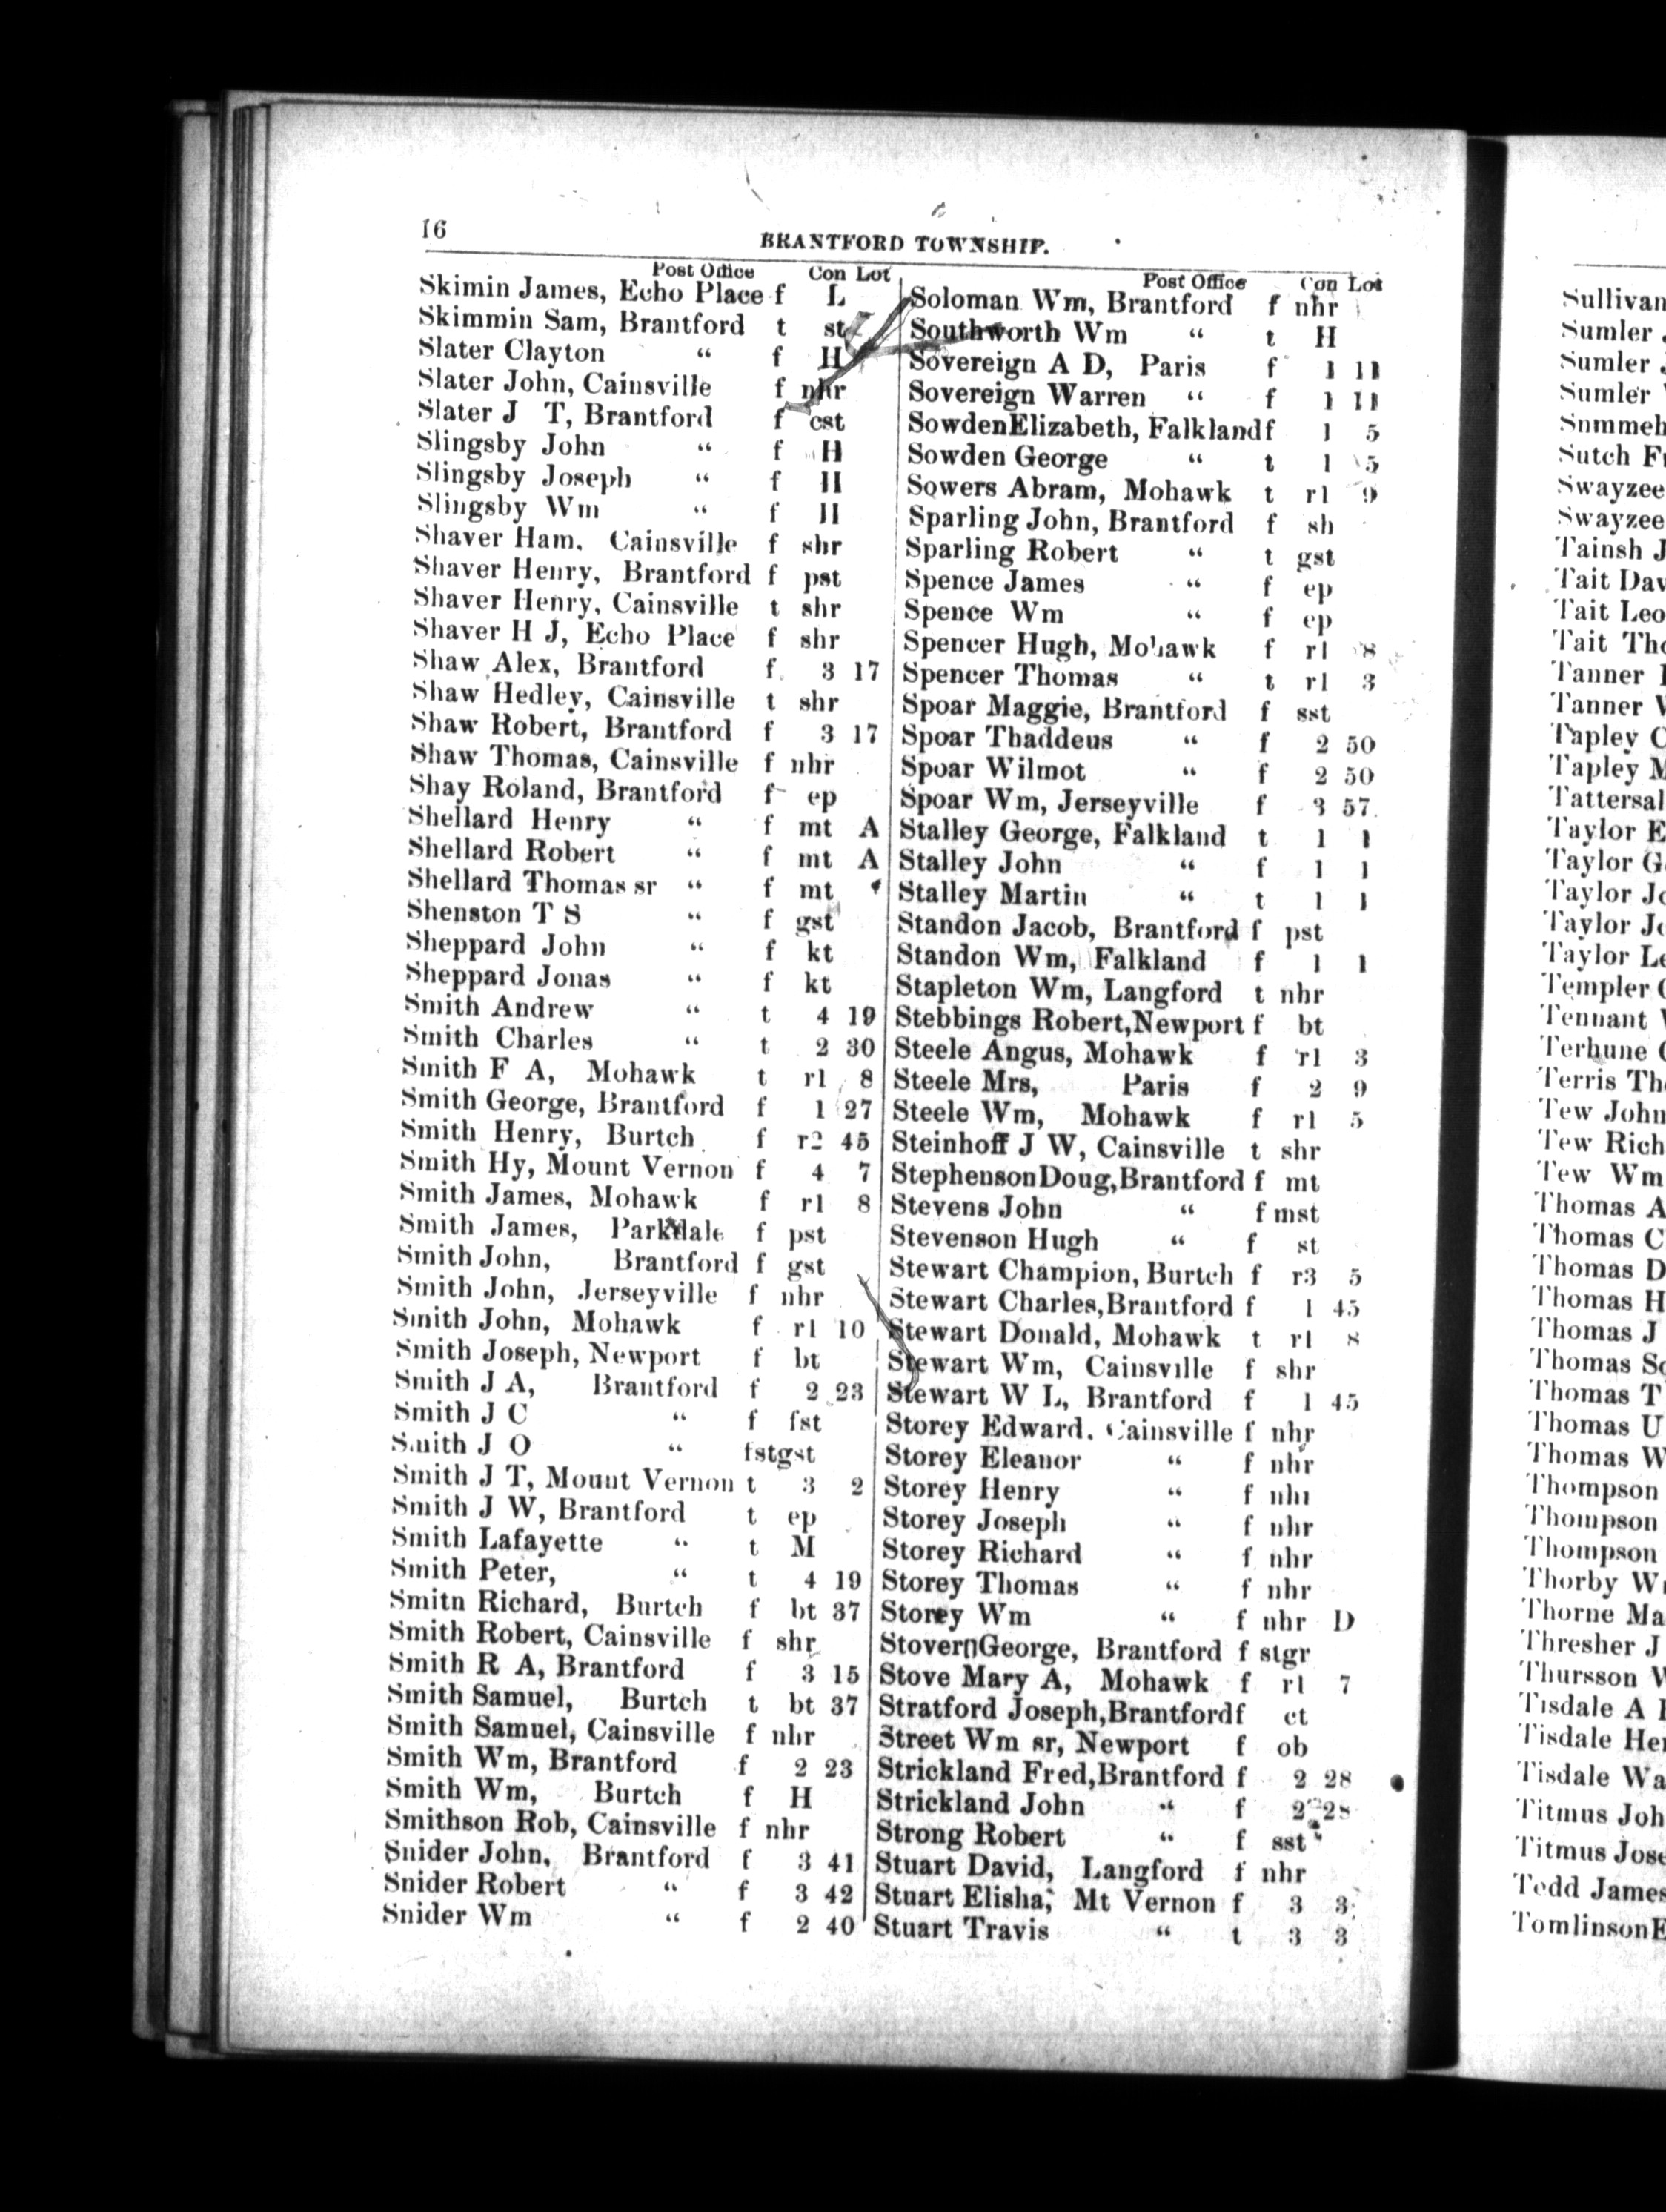 16
BRANTFORD TOWNSHIP.
Post Office Con Lot
Skimin James, Echo Place f L
Skimmin Sam, Brantford t st
Slater Clayton " f H
Slater John, Cainsville f nhr
Slater J T, Brantford f cst
Slingsby John " f H
Slingsby Joseph " f H
Slingsby Wm " f H
Shaver Ham. Cainsville f shr
Shaver Henry, Brantford f pst
Shaver Henry, Cainsville t shr
Shaver H J, Echo Place f shr
Shaw Alex, Brantford f 3 17
Shaw Hedley, Cainsville t shr
Shaw Robert, Brantford f 3 17
Shaw Thomas, Cainsville f nhr
Shay Roland, Brantford f ep
Shellard Henry " f mt A
Shellard Robert " f mt A
Shellard Thomas sr " f mt
Shenston T S " f gst
Sheppard John " f kt
Sheppard Jonas " f kt
Smith Andrew " t 4 19
Smith Charles " t 2 30
Smith F A, Mohawk t rl 8
Smith George, Brantford f 1 27
Smith Henry, Burtch f r2 45
Smith Hy, Mount Vernon f 4 7
Smith James, Mohawk f rl 8
Smith James, Parkdale f pst
Smith John, Brantford f gst
Smith John, Jerseyville f nhr
Smith John, Mohawk f rl 10
Smith Joseph, Newport f bt
Smith J A, Brantford f 2 23
Smith J C " f fst
Smith J O " fstgst
Smith J T, Mount Vernon t 3 2
Smith J W, Brantford t ep
Smith Lafayette " t M
Smith Peter, " t 4 19
Smitn Richard, Burtch f bt 37
Smith Robert, Cainsville f shr
Smith R A, Brantford f 3 15
Smith Samuel, Burtch t bt 37
Smith Samuel, Cainsville f nhr
Smith Wm, Brantford f 2 23
Smith Wm, Burtch f H
Smithson Rob, Cainsville f nhr
Snider John, Brantford f 3 41
Snider Robert " f 3 42
Snider Wm " f 2 40
Post Office Con Lot
Soloman Wm, Brantford f nhr
Southworth Wm " t H
Sovereign A D, Paris f 1 11
Sovereign Warren " f 1 11
SowdenElizabeth, Falklandf 1 5
Sowden George " t 1 5
Sowers Abram, Mohawk t rl 9
Sparling John, Brantford f sh
Sparling Robert " t gst
Spence James " f ep
Spence Wm " f ep
Spencer Hugh, Mohawk f rl 8
Spencer Thomas " t rl 3
Spoar Maggie, Brantford f sst
Spoar Thaddeus " f 2 50
Spoar Wilmot " f 2 50
Spoar Wm, Jerseyville f 3 57
Stalley George, Falkland t 1 1
Stalley John " f 1 1
Stalley Martin " t 1 1
Standon Jacob, Brantford f pst
Standon Wm, Falkland f 1 1
Stapleton Wm, Langford t nhr
Stebbings Robert,Newport f bt
Steele Angus, Mohawk f rl 3
Steele Mrs, Paris f 2 9
Steele Wm, Mohawk f rl 5
Steinhoff J W, Cainsville t shr
StephensonDoug,Brantford f mt
Stevens John " f mst
Stevenson Hugh " f st
Stewart Champion, Burtch f r3 5
Stewart Charles,Brantford f 1 45
Stewart Donald, Mohawk t rl 8
Stewart Wm, Cainsville f shr
Stewart W L, Brantford f 1 45
Storey Edward. Cainsville f nhr
Storey Eleanor " f nhr
Storey Henry " f nhr
Storey Joseph " f nhr
Storey Richard " f nhr
Storey Thomas " f nhr
Storey Wm " f nhr D
Stover George, Brantford f stgr
Stove Mary A, Mohawk f rl 7
Stratford Joseph,Brantfordf ct
Street Wm sr, Newport f ob
Strickland Fred,Brantford f 2 28
Strickland John " f 2 28
Strong Robert " f sst
Stuart David, Langford f nhr
Stuart Elisha, Mt Vernon f 3 3
Stuart Travis " t 3 3
Sullivan
Sumler
Sumler
Sumler
Summeh
Sutch
Swayzee
Swayzee
Tainsh J
Tait Dav
Tait Leo
Tait Tho
Tanner
Tanner
Tapley C
Tapley M
Tattersal
Taylor E
Taylor G
Taylor Jo
Taylor Jo
Taylor Le
Templer
Tennant
Terhune
Terris Th
Tew John
Tew Rich
Tew Wm
Thomas A
Thomas C
Thomas D
Thomas H
Thomas J
Thomas
Thomas T
Thomas U
Thomas W
Thompson
Thompson
Thompson
Thorby W
Thorne Ma
Thresher J
Thursson
Tisdale A
Tisdale He
Tisdale Wa
Titmus Joh
Titmus Jose
Todd James
Tomlinson